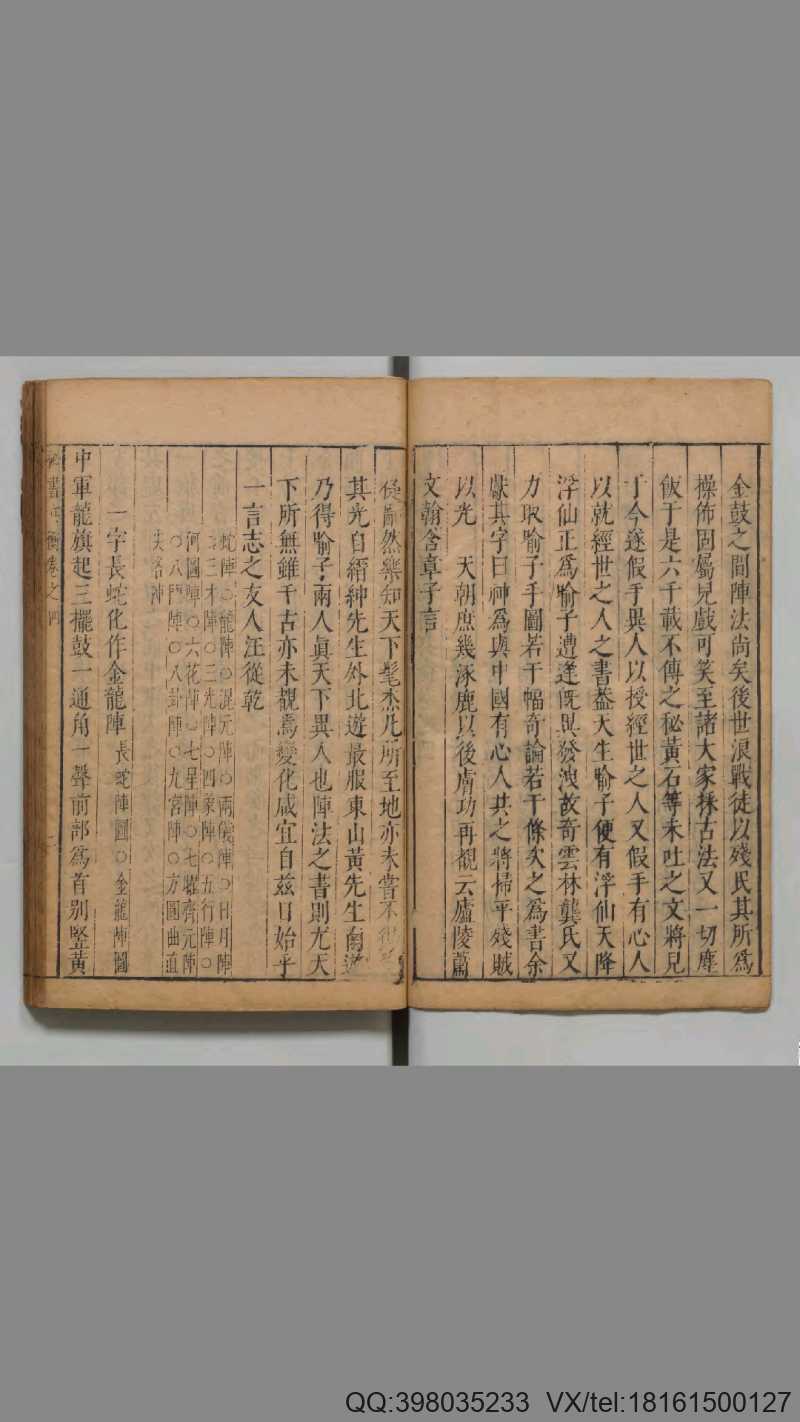 金鼓之間陣法尚矣後世浪戰徒以殘民其所爲
操佈固屬兒戲可笑至諸大家抹古法又一切塵
飯于是六千載不傳之秘黃石等未吐之文將見
于今遂假手異人以授經世之人又假手有心人
以就經世之人之書葢天生喻子便有浮仙天降
浮仙正爲喻子遭逢旣異發洩故奇雲林龔氏又
力取喻子手圖若干幅奇論若干條矣之爲書余
獻其字曰神爲與中國有心人共之將掃平殘賊
以光 天朝庶幾涿鹿以後膚功再覩云廬陵蕭
文翰含章子言
然樂知天下髦杰凡所至地亦未嘗不
其光自縉紳先生外北遊最服東山黃先生南遊
乃得喻子兩人眞天下異人也陣法之書則尤天
下所無雖千古亦未覩焉變化咸宜自兹日始乎
一言志之友人汪從乾
蛇陣○龍陣○混元陣○兩儀陣○日月陣
○三才陣○三光陣○四象陣○五行陣○
河圖陣○六花陣○七星陣○七曜齊元陣
○八門陣○八卦陣○九宮陣○方圓曲直
一字長蛇化作金龍陣 長蛇陣圖○金龍陣圖
中軍龍旗起三擺鼓一通角一聲前部爲首別竪黃
書 衡卷之四
QQ:398035233 VX/tel:18161500127